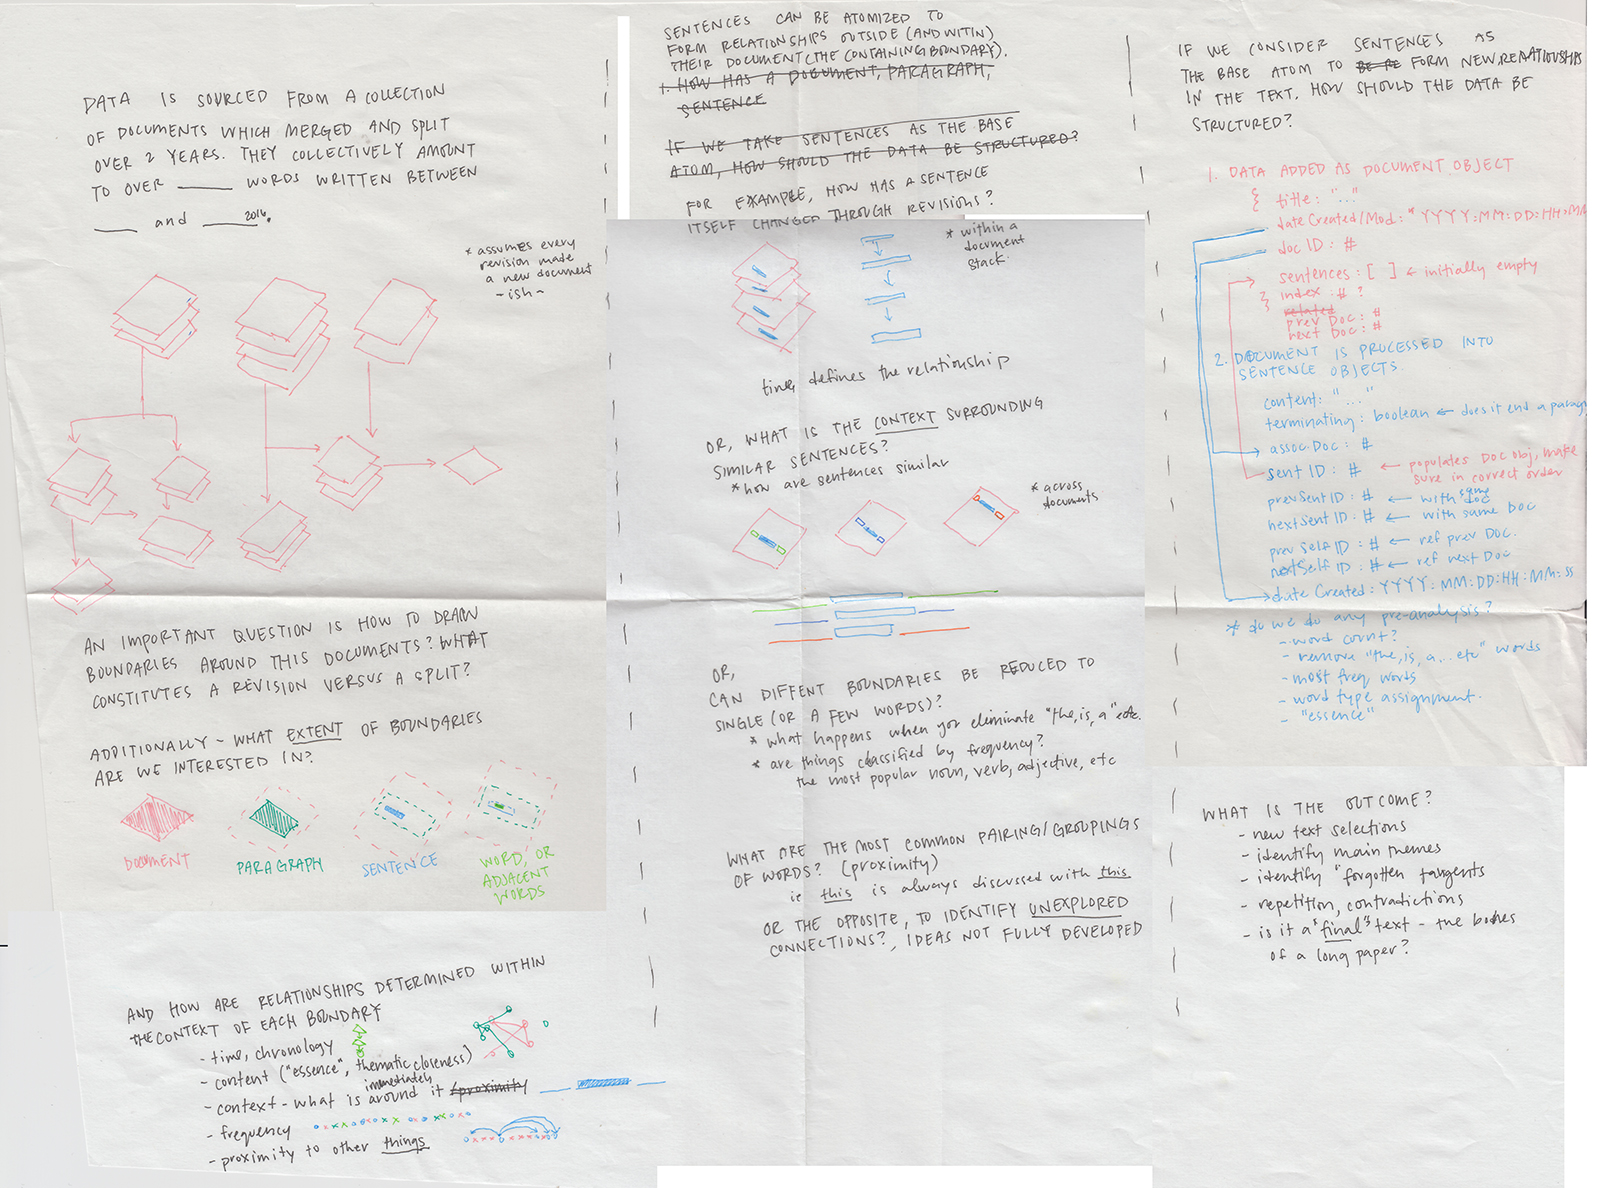 DATA IS SOURCED FROM A COLLECTION
OF DOCUMENTS WHICH MERGED AND SPLIT
OVER 2 YEARS. THEY COLLECTIVELY AMOUNT
TO OVER _____ WORDS WRITTEN BETWEEN
____ and _____ 2016.
* assumes every
revision made
a new document
-ish-
AN IMPORTANT QUESTION IS HOW TO DRAW
BOUNDARIES AROUND THIS DOCUMENTS? WHAT
CONSTITUTES A REVISION VERSUS A SPLIT?
ADDITIONALLY - WHAT EXTENT OF BOUNDARIES
ARE WE INTERESTED IN?
DOCUMENT
PARAGRAPH
SENTENCE
WORD, OR
ADJACENT
WORDS
AND HOW ARE RELATIONSHIPS DETERMINED WITHIN
THE CONTEXT OF EACH BOUNDARY
- time, chronology
- content ("essence", thematic closeness)
immediately
- context - what is around it (proximity
- frequency
- proximity to other things
SENTENCES CAN BE ATOMIZED TO
FORM RELATIONSHIPS OUTSIDE (AND WITIN)
THEIR DOCUMENT (THE CONTAINING BOUNDARY).
1. HOW HAS A DOCUMENT, PARAGRAPH,
SENTENCE
IF WE TAKE SENTENCES AS THE BASE
ATOM, HOW SHOULD THE DATA BE STRUCTURED?
FOR EXAMPLE, HOW HAS A SENTENCE
ITSELF CHANGED THROUGH REVISIONS?
* within a
document
stack.
time defines the relationship
OR, WHAT IS THE CONTEXT SURROUNDING
SIMILAR SENTENCES?
* how are sentences similar
* across
documents
OR,
CAN DIFFENT BOUNDARIES BE REDUCED TO
SINGLE (OR A FEW WORDS)?
* what happens when you eliminate "the, is, a" etc.
* are things classified by frequency?
the most popular noun, verb, adjective, etc
WHAT ARE THE MOST COMMON PAIRING/GROUPINGS
OF WORDS? (proximity)
ie this is always discussed with this
OR THE OPPOSITE, TO IDENTIFY UNEXPLORED
CONNECTIONS?, IDEAS NOT FULLY DEVELOPED
IF WE CONSIDER SENTENCES AS
THE BASE ATOM TO BE RE FORM NEW RELATIONSHIPS
IN THE TEXT, HOW SHOULD THE DATA BE
STRUCTURED?
1. DATA ADDED AS DOCUMENT OBJECT
{ title: "..."
dateCreated/Mod: * YYYY:MM:DD:HH:MM
doc ID: #
sentences: [ ] ← initially empty
} index: # ?
related
prev Doc: #
next Doc: #
2. DOCUMENT IS PROCESSED INTO
SENTENCE OBJECTS.
content: "..."
terminating: boolean ← does it end a parag
assoc.Doc: #
sent ID: # ← populates Doc obj, make
sure in correct order
prevSentID: # ← with same doc
nextSentID: # ← with same Doc
prevSelfID: # ← ref prev Doc.
nextSelfID: # ← ref next Doc
date Created: YYYY:MM:DD:HH:MM:SS
* do we do any pre-analysis?
- word count?
- remove "the, is, a... etc" words
- most freq words
- word type assignment.
- "essence"
WHAT IS THE OUTCOME?
- new text selections
- identify main themes
- identify "forgotten tangents
- repetition, contradictions
- is it a "final" text - the bodies
of a long paper?